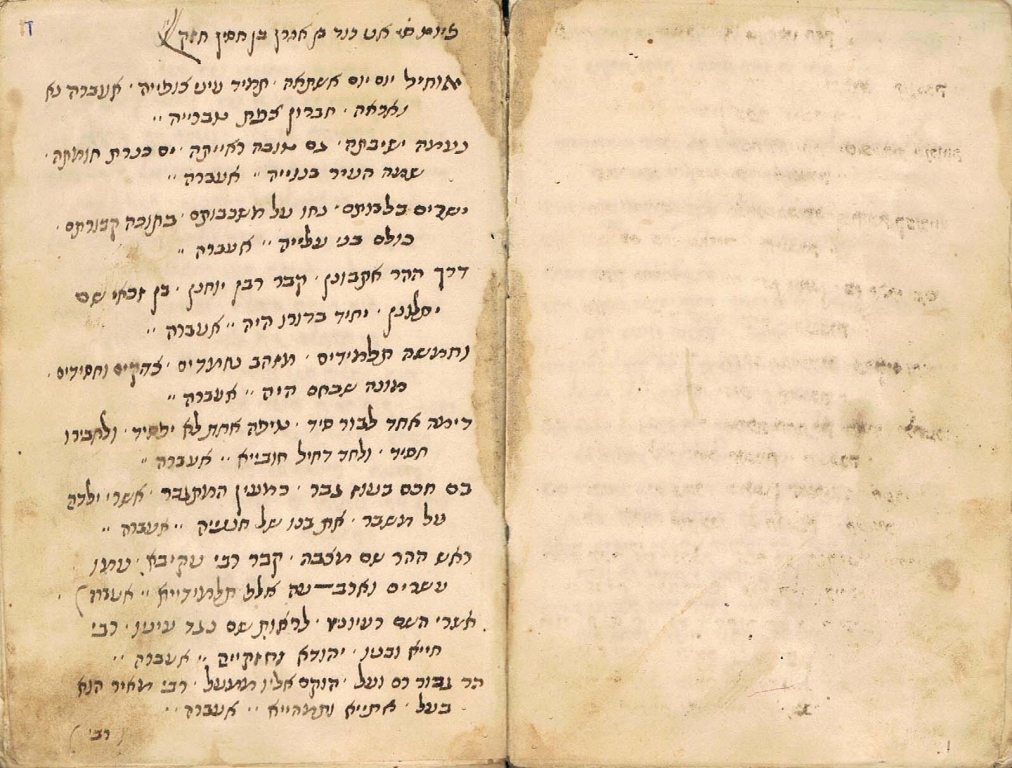 אני דוד בן אהרן בן חסין חזק
אוחיל יום יום אשתאה · תמיד עיני צופייה · אעברה נא
ואראה · חברון צפת טברייה ״
נעימה ישיבתה · גם טובה ראייתה · ים כנרת חומתה ·
שמנה העיר בנוייה ״ אעברה ״
ישרים בלבותם · נחו על משכבותם · בתוכה קבורתם ·
כולם בני עלייה ״ אעברה ״
דרך ההר אתבונן · קבר רבן יוחנן · בן זכאי שם
יתלונן · יחיד בדורו היה ״ אעברה ״
וחמשה תלמידים · מזהב נחמדים · צדיקים וחסידים ·
מונה שבחם היה ״ אעברה ״
דימה אחד לבור סיד · טיפה אחת לא יפסיד · ולחבירו
חסיד · ולחד דחיל חובייא ״ אעברה ״
בם חכם בעוז גבר · כמעין המתגבר · אשרי יולדה
על משבר · את בנו של חנניה ״ אעברה ״
ראש ההר שם מצבה · קבר רבי עקיבא · עמו
עשרים וארבעה אלף תלמידייא ״ אעברה
אשרי השם רעיוניו · לראות שם נגד עיניו · רבי
חייא ובניו · יהודא וחזקייה ״ אעברה ״
הר גבוה רם ועל · הוקם אליו ממעל · רבי מאיר הוא
בעל · אתייא ותמהייא ״ אעברה ״
רבי